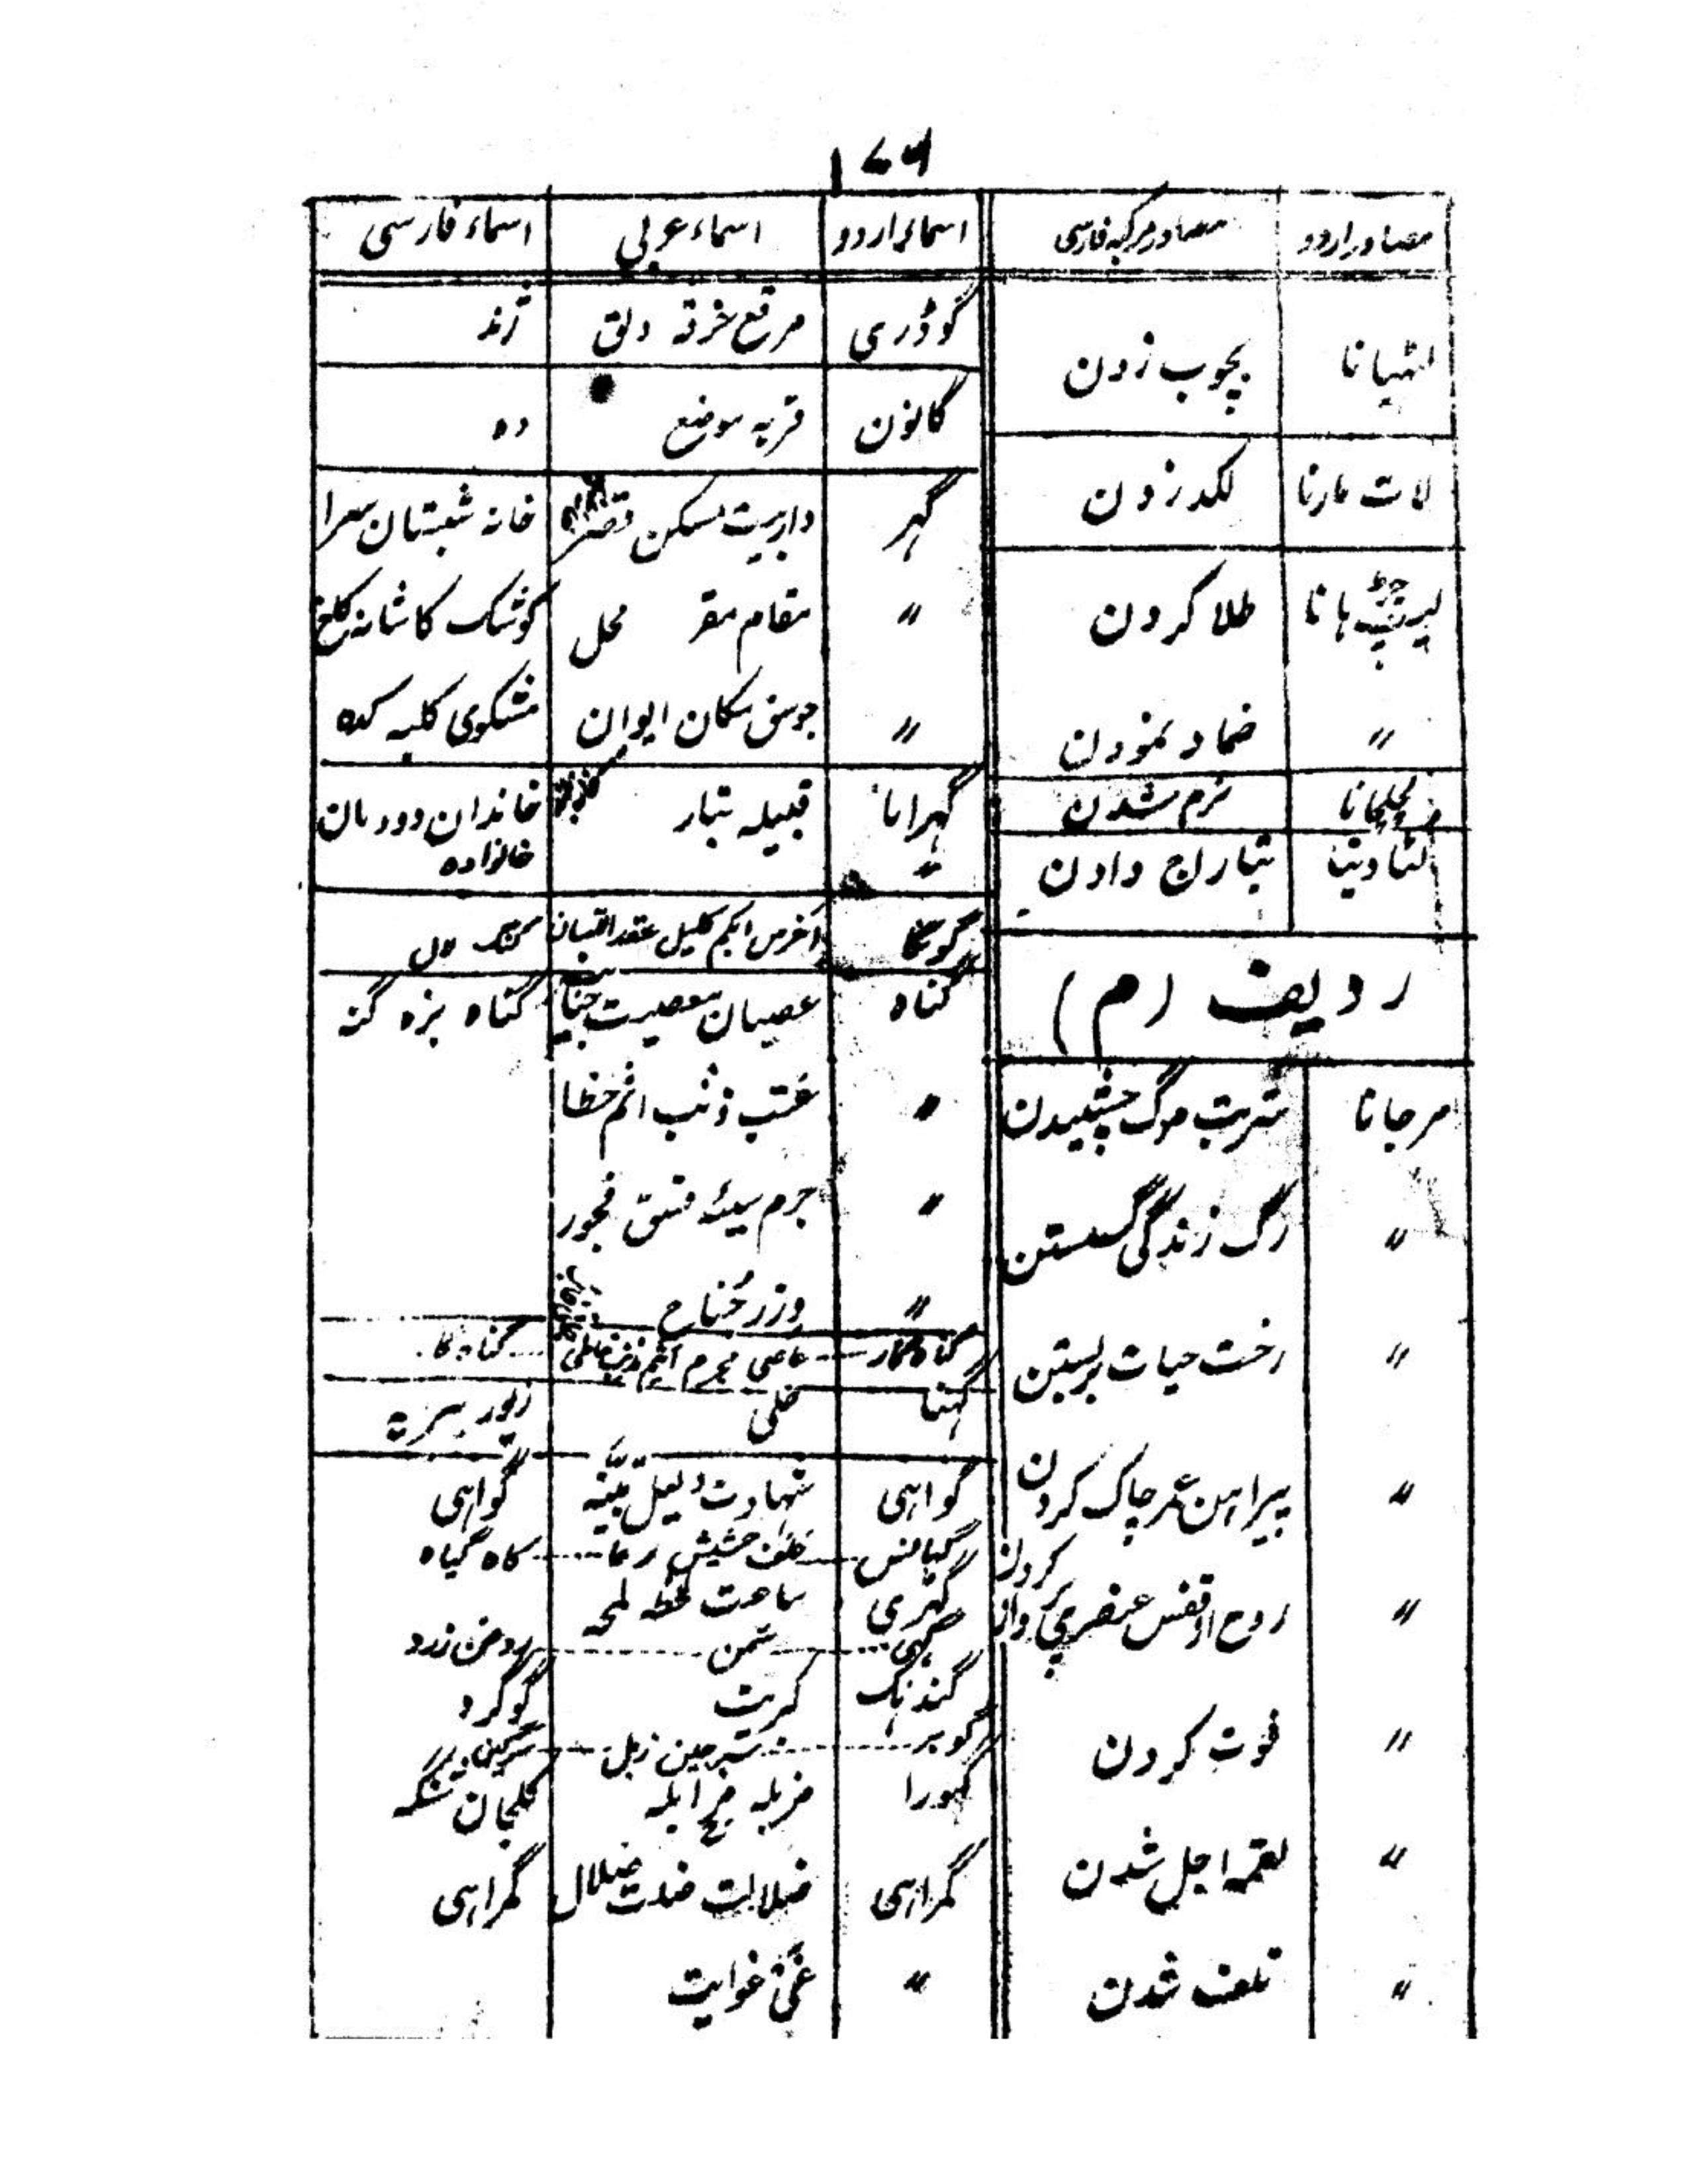 ۱۷۶
مصادر اردو	مصادر مرکبہ فارسی
لٹھیانا	بچوب زدن
لات مارنا	لکد زدن
لیپ چڑہانا	طلا کردن
〃	ضماد نمودن
لچلچانا	نرم شدن
لٹا دینا	بتاراج دادن
ردیف (م)
مرجانا	شربت مرگ چشیدن
〃	رگ زندگی گسستن
〃	رخت حیات بربستن
〃	پیراہن عمر چاک کردن
〃	روح از قفس عنصری پرواز کردن
〃	فوت کردن
〃	لقمہ اجل شدن
〃	تلف شدن
اسماء اردو	اسماء عربی	اسماء فارسی
گوڈری	مرقع خرقہ دلق	ژند
گانون	قریہ موضع	دہ
گہر	دار بیت مسکن قصر	خانہ شبستان سرا
〃	مقام مقر محل	کوشک کاشانہ کاخ
〃	جوسق مکان ایوان	مشکوی کلبہ کدہ
گہرانا	قبیلہ تبار	خاندان دودمان خانوادہ
گونگا	اخرس ابکم کلیل	گنگ لال
گناہ	عصیان معصیت	گناہ بزہ گنہ
〃	ذنب اثم خطا
〃	جرم سیئہ فسق فجور
〃	وزر جُناح
گناہگار	عاصی مجرم	گناہگار
گہنا	حلی	زیور پیرایہ
گواہی	شہادت دلیل بیّنہ	گواہی
گہانس	علف حشیش	کاہ گیاہ
گہڑی	ساعت لحظہ لمحہ
گہی	سمن	روغن زرد
گندہک	کبریت	گوگرد
گوبر	سرجین زبل	سرگین
گہورا	مزبلہ
گمراہی	ضلالت ضلال	گمراہی
〃	غَیّ غوایت